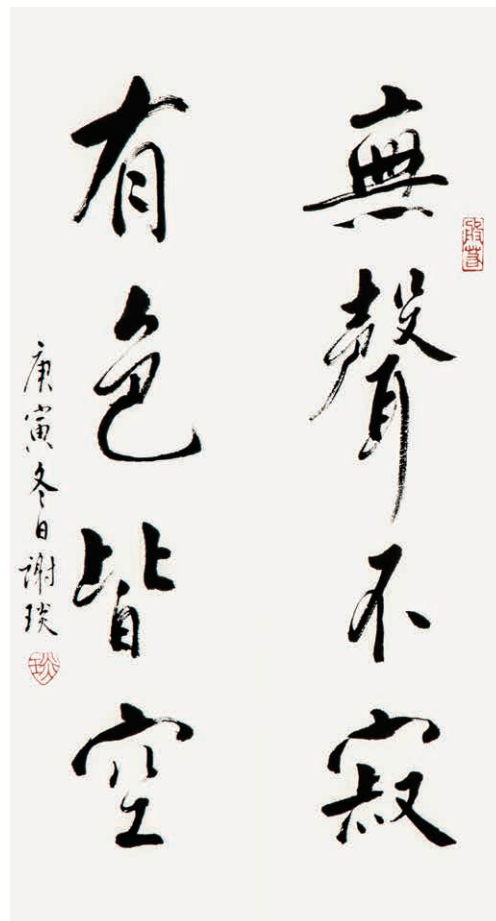 無聲不寂
有色皆空
庚寅冬日謝琰
琰